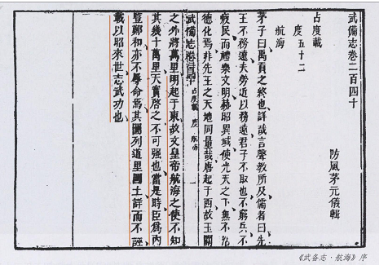 武備志卷二百四十
防風茅元儀輯
占度載
度五十二
航海
茅子曰禹貢之終也詳哉言聲教所及儒者曰先
王不務遠夫勞近以務遠君子不取也不窮兵不
疲民而禮樂文明赫昭異域使光天之下無不
德化焉非先王之天地同量哉唐起于西故玉關
武備志 占度載 度 航海 一
之外將萬里明起于東故文皇帝航海之使不知
其幾十萬里天實啓之不可強也當是時臣為內
豎鄭和亦不辱命焉其圖列道里國土詳而不誣
載以昭來世志武功也
《武备志·航海》序